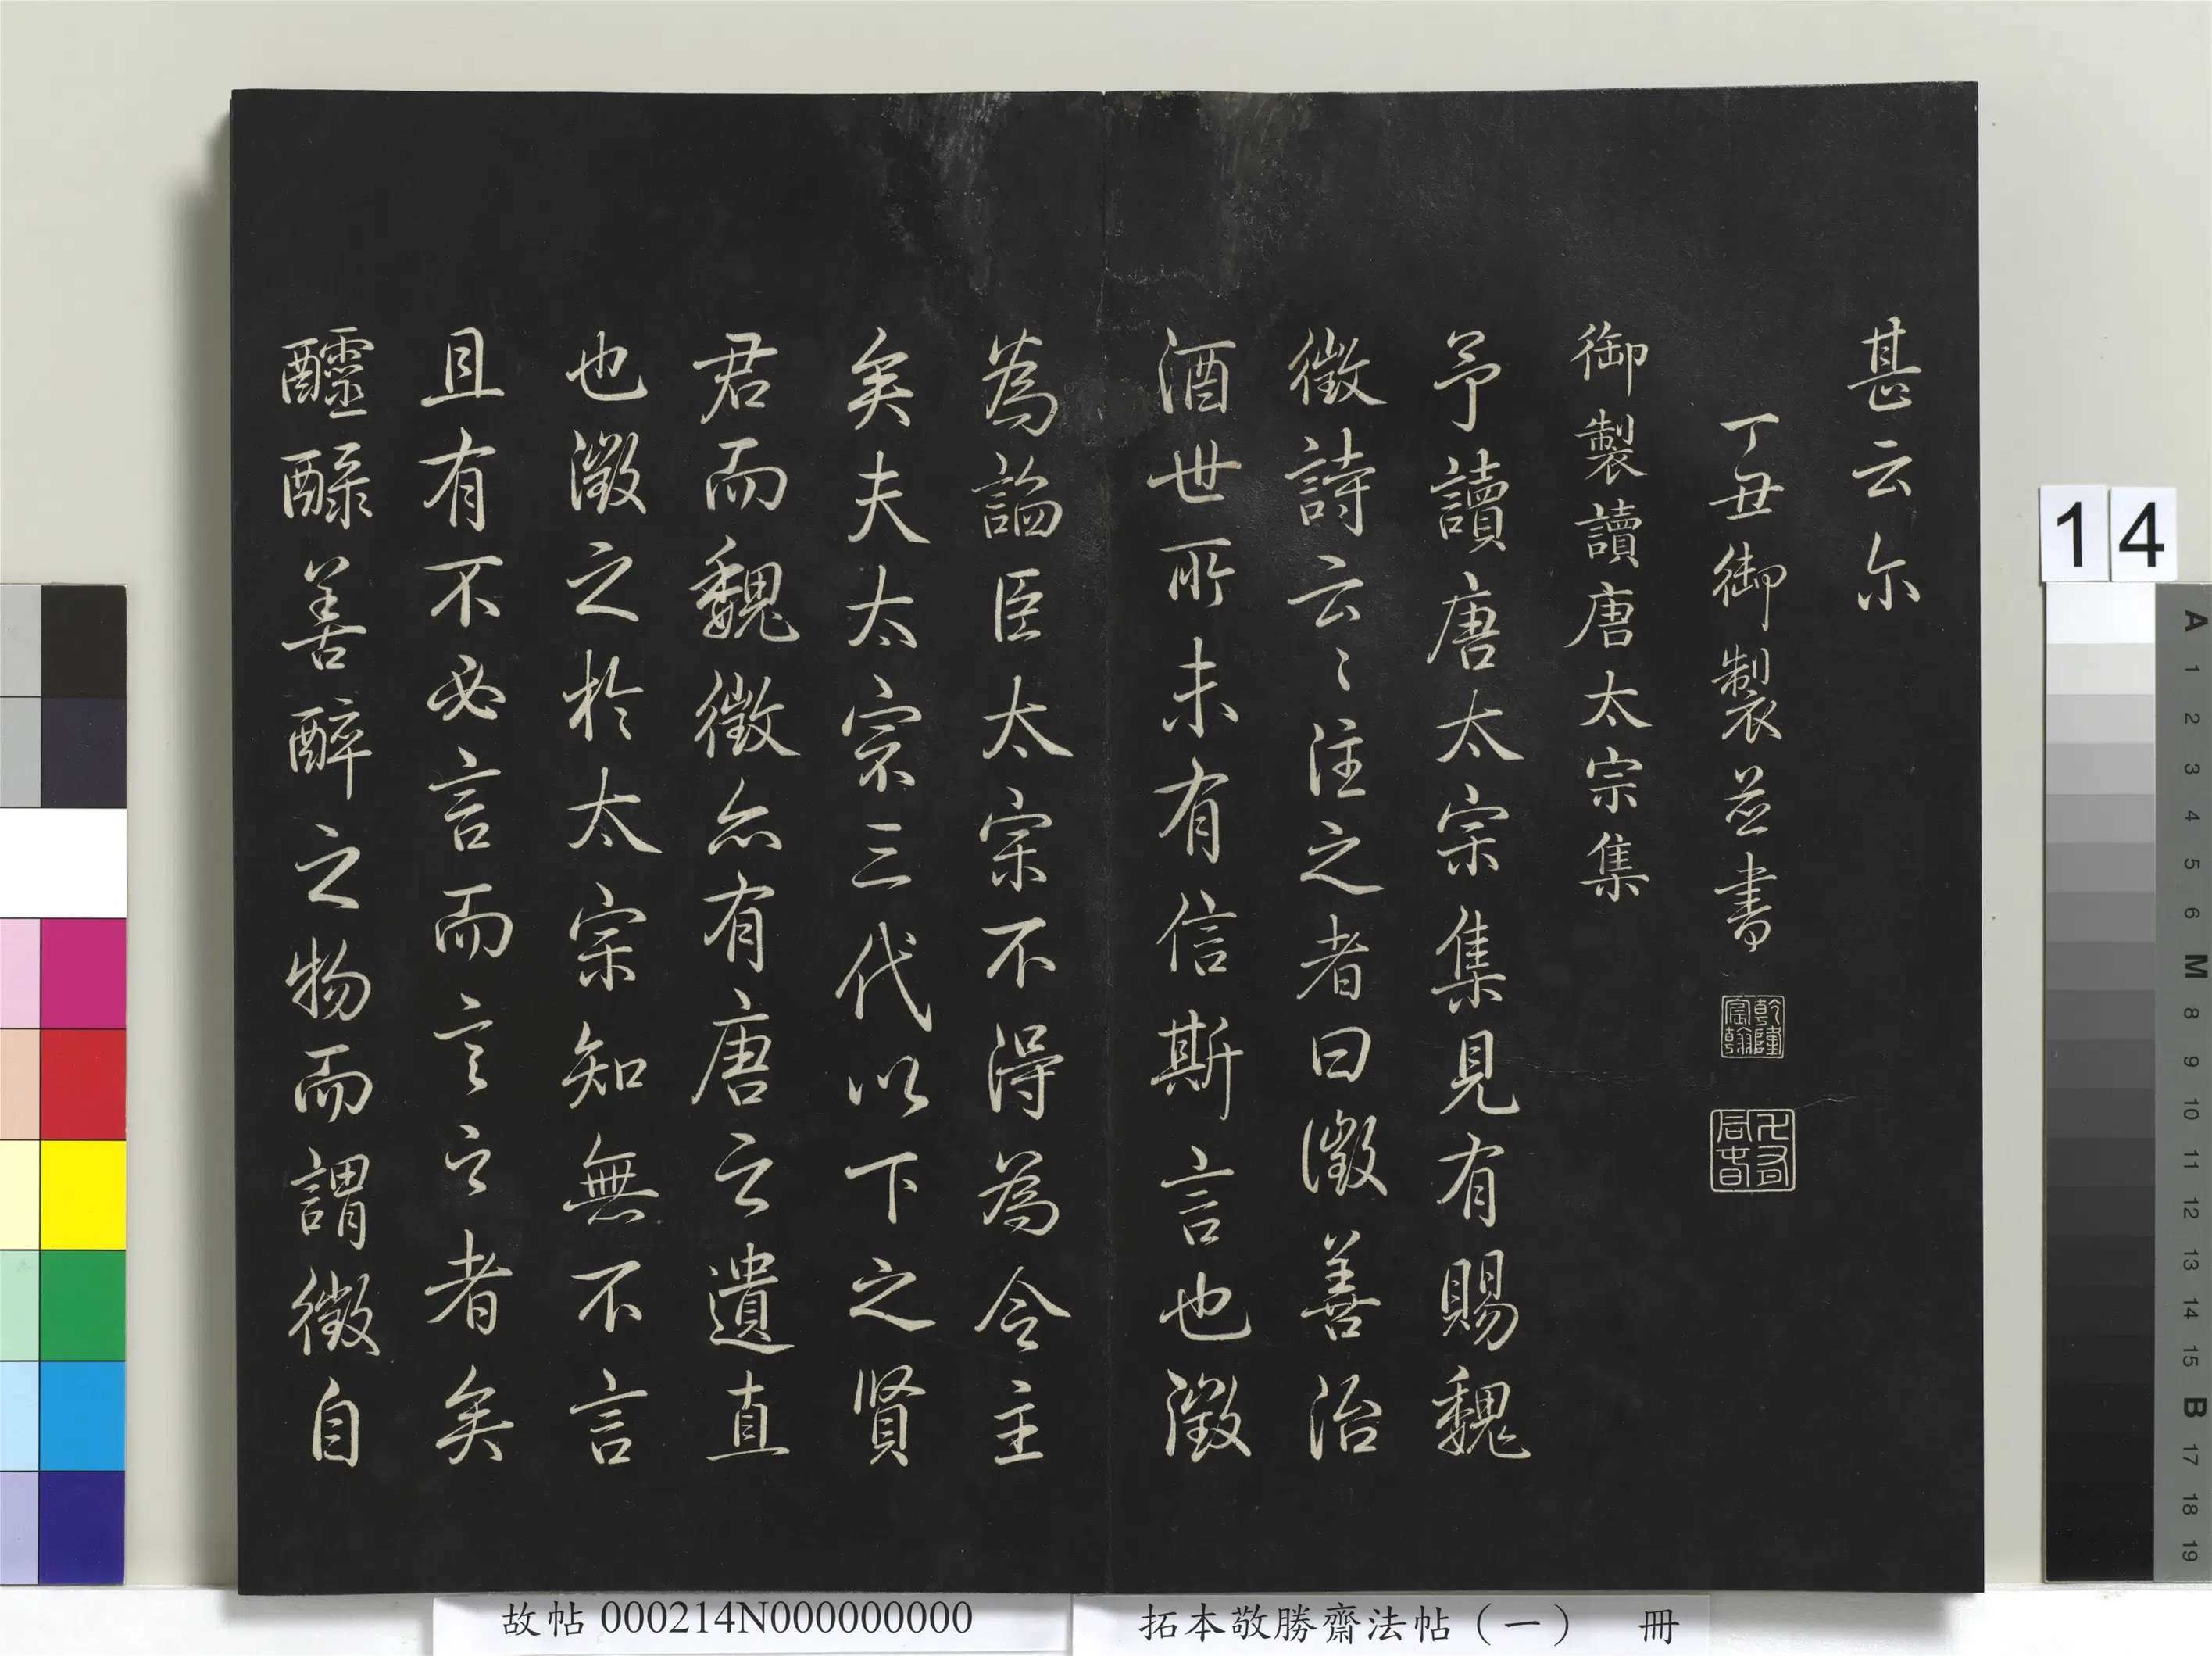 甚云尔
丁丑御製並書
乾隆宸翰
御製讀唐太宗集
予讀唐太宗集見有賜魏
徵詩云〻注之者曰徵善治
酒世所未有信斯言也徵
為諂臣太宗不得為令主
矣夫太宗三代以下之賢
君而魏徵亦有唐之遺直
也徵之於太宗知無不言
且有不必言而言之者矣
醽醁善醉之物而謂徵自
14
故帖000214N000000000
拓本敬勝齋法帖（一） 冊
A 1 2 3 4 5 6 M 8 9 10 11 12 13 14 15 B 17 18 19